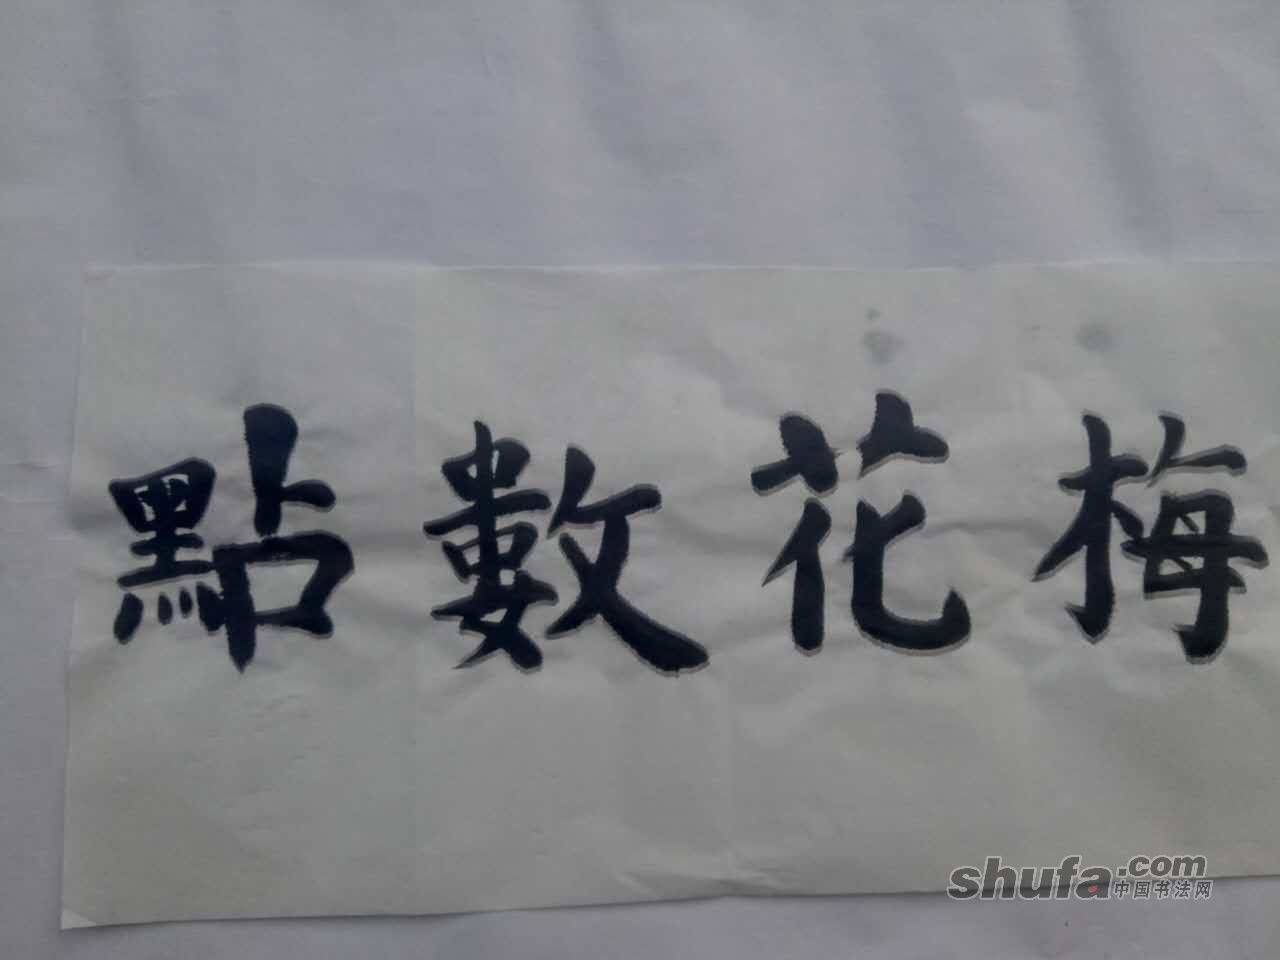 梅花數點
shufa.com
中国书法网